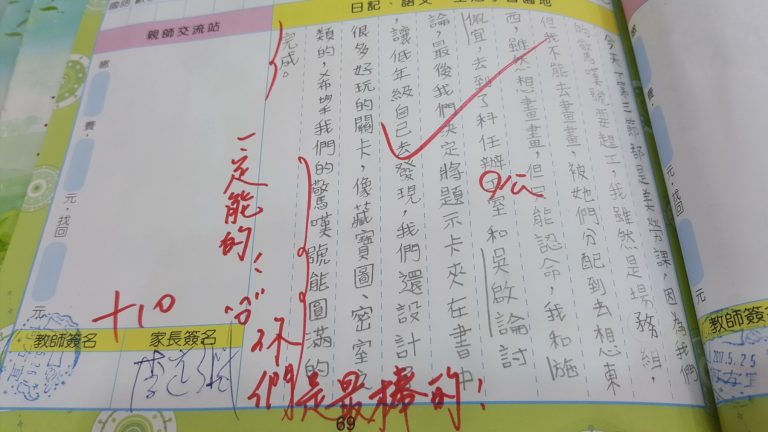 日記、語文、生活學習園地
今天了第三節都是美勞課,因為我們
的驚嘆號要趕工,我雖然是場務組,
但我不能去畫畫,被她們分配到去想東
西,雖然想畫畫,但只能認命,我和施
佩宜,去到了科任辦公室和吳啟論討
論,最後我們決定將題示卡夾在書中
,讓低年級自己去發現,我們還設計
很多好玩的關卡,像藏寶圖、密室
類的,希望我們的驚嘆號能圓滿的
完成。
公
一定能的!
你們是最棒的!
+10
親師交流站
繳
費,
元,找回
元
教師簽名
家長簽名
69
繳
費,
元,找回
元
教師簽名
2017.5.25